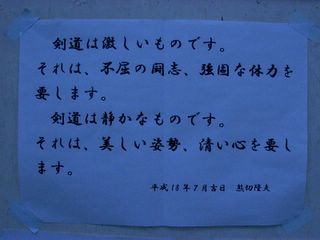 剣道は激しいものです。
それは、不屈の闘志、強固な体力を
要します。
剣道は静かなものです。
それは、美しい姿勢、清い心を要し
ます。
平成18年7月吉日　熊切隆夫